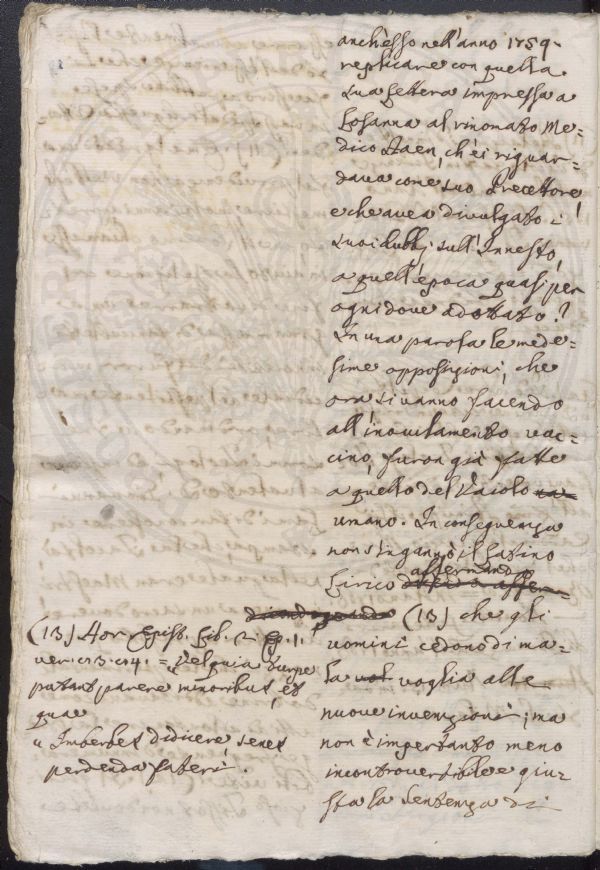 anch'esso nell'anno 1759.
replicare con quella
sua Lettera impressa a
Losanna al rinomato Me=
dico Haen, ch'ei riguar=
dava come suo Precettore,
e che avea divulgato i
suoi dubbj sull'Innesto,
a quell'epoca quasi per
ogni dove adottato?
In una parola le mede=
sime opposizioni, che
ora si vanno facendo
all'inovulamento vac=
cino, furon già fatte
a quello del Vaiolo
umano. In conseguenza
non s'ingannò il Latino
Lirico affermando
(13) che gli
uomini cedono di ma=
la voglia alle
nuove invenzioni; ma
non è impertanto meno
incontrovertibile e giu=
sta la Sentenza di
(13) Hor. Epist. Lib. 2. Ep. 1.
ver. 13 14. = Vel quia turpe
putant parere minoribus, et
quae
" Imberbes didicere, senes
perdenda fateri.